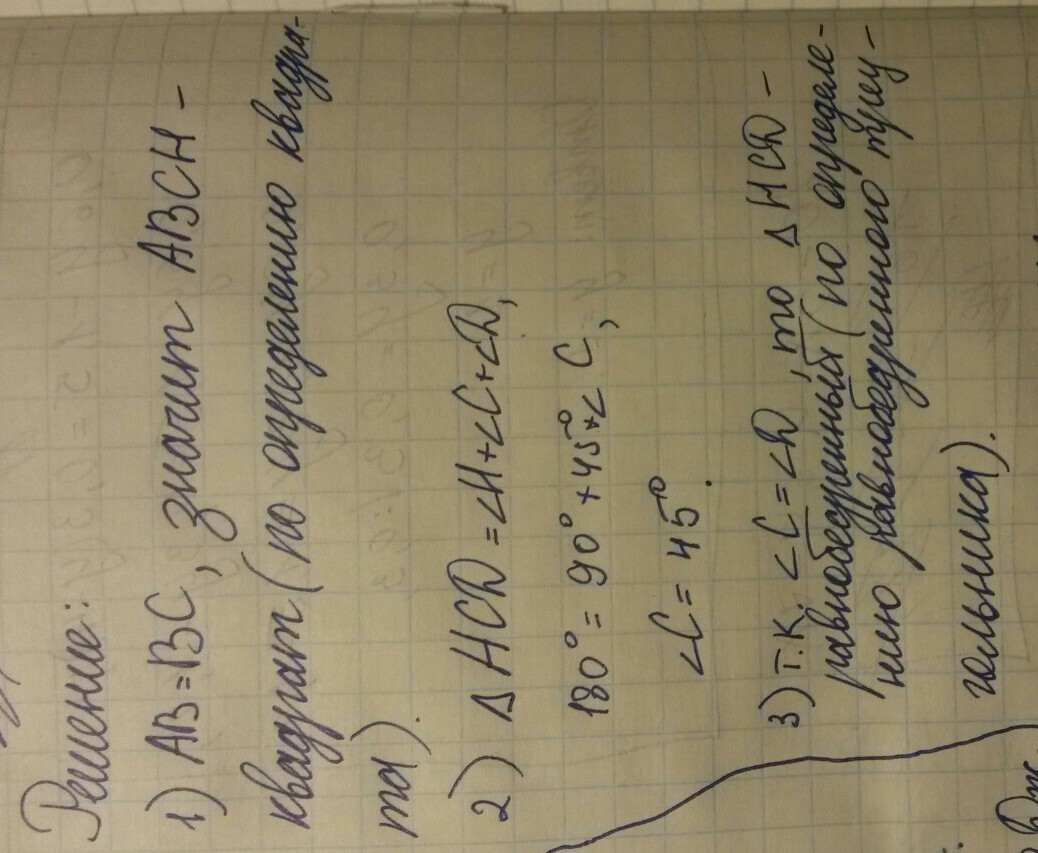 Решение:
1) AB=BC, значит ABCH -
квадрат (по определению квадра-
та).
2) Δ HCD = ∠H+∠C+∠D,
180° = 90° + 45°+∠C,
∠C = 45°.
3) т.к. ∠C=∠D, то Δ HCD -
равнобедренный (по определе-
нию равнобедренного треу-
гольника).